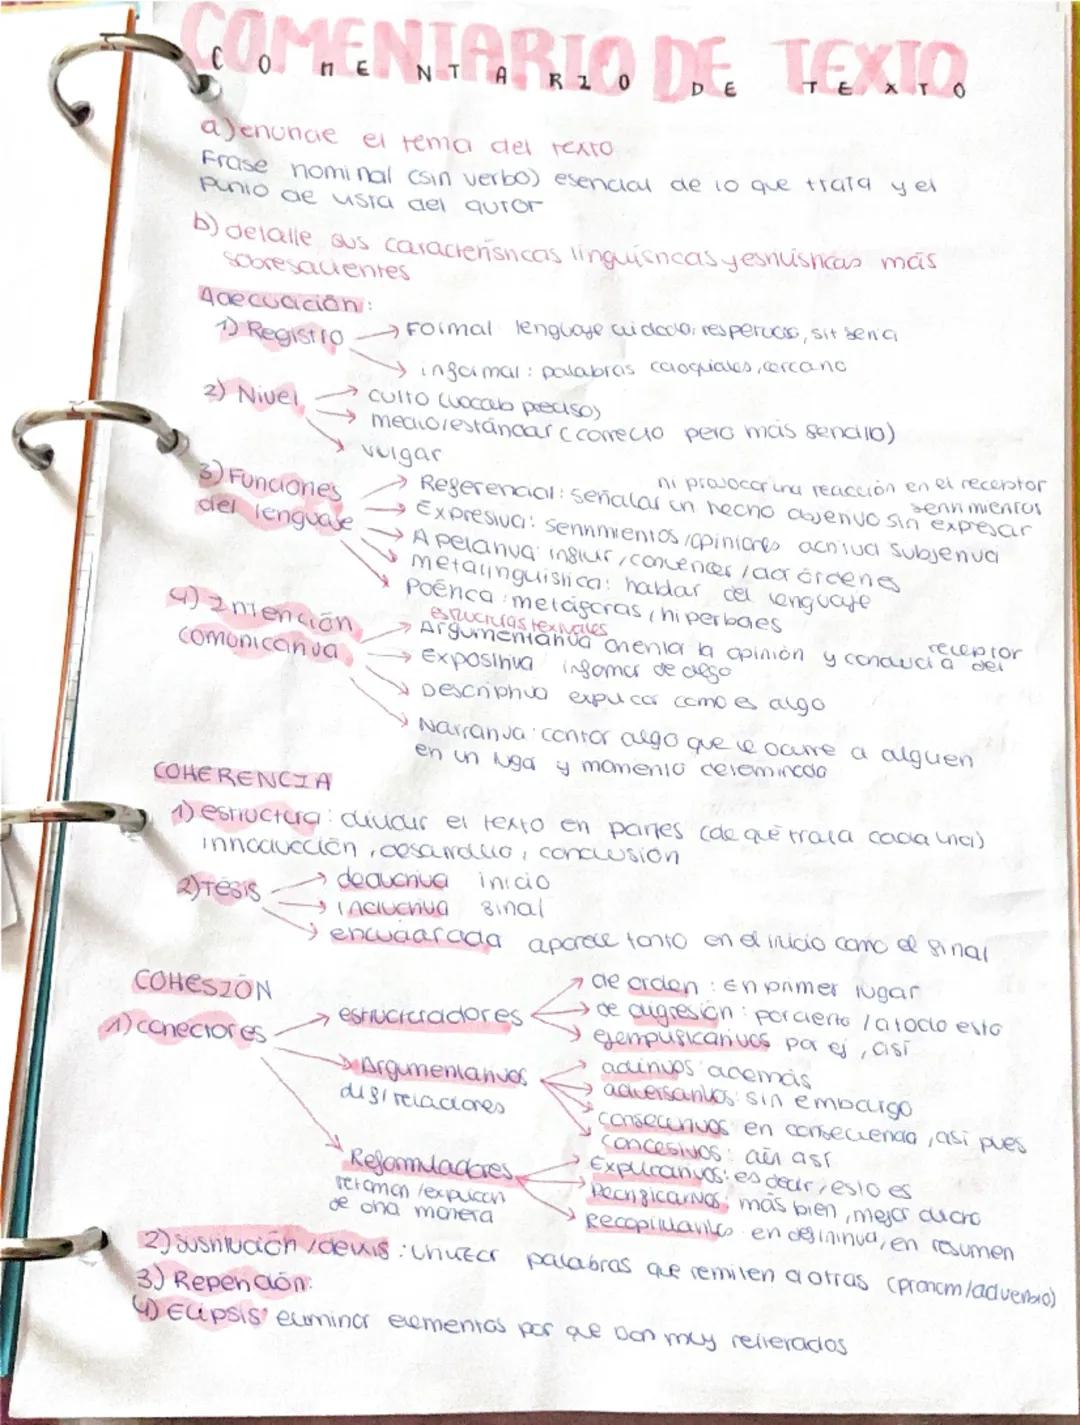 COMENTARIO DE TEXTO
COMENTARIO DE TEXTO
a) enuncie el tema del texto
Frase nominal (sin verbo) esencial de lo que trata y el
punto de vista del autor
b) detalle sus características lingüísticas y estilísticas más
sobresalientes
Adecuación:
1) Registro → Formal lenguaje cuidado, respetuoso, sit seria
→ informal: palabras coloquiales, cercano
2) Nivel → culto (vocab preciso)
→ medio/estándar (correcto pero más sencillo)
→ vulgar
3) Funciones del lenguaje
→ Referencial: señalar un hecho objetivo sin expresar sentimientos
ni provocar una reacción en el receptor
→ Expresiva: sentimientos/opiniones actitud subjetiva
→ Apelativa: influir, convencer/dar órdenes
→ metalingüística: hablar del lenguaje
→ Poética: metáforas, hiperbaes
4) Intención comunicativa
estructuras textuales
→ Argumentativa orienta la opinión y conducta del receptor
→ Expositiva informar de algo
→ Descriptiva explicar como es algo
→ Narrativa: contar algo que le ocurre a alguien
en un lugar y momento determinado
COHERENCIA
1) estructura: dividir el texto en partes (de qué trata cada una)
introducción, desarrollo, conclusión
2) Tésis → deductiva inicio
→ inductiva final
→ encuadrada aparece tanto en el inicio como el final
COHESIÓN
1) conectores → estructuradores → de orden: En primer lugar
→ de digresión: por cierto / a todo esto
→ ejemplificativos por ej, así
→ Argumentativos → aditivos: además
dif/relaciones → adversativos: sin embargo
→ consecutivos en consecuencia, así pues
→ concesivos: aún así
→ Reformuladores → Explicativos: es decir, esto es
retoman/explican → Rectificativos: más bien, mejor dicho
de otra manera → Recapitulativos: en definitiva, en resumen
2) sustitución/deixis: utilizar palabras que remiten a otras (pronom/adverbio)
3) Repetición:
4) Elipsis: eliminar elementos por que son muy reiterados